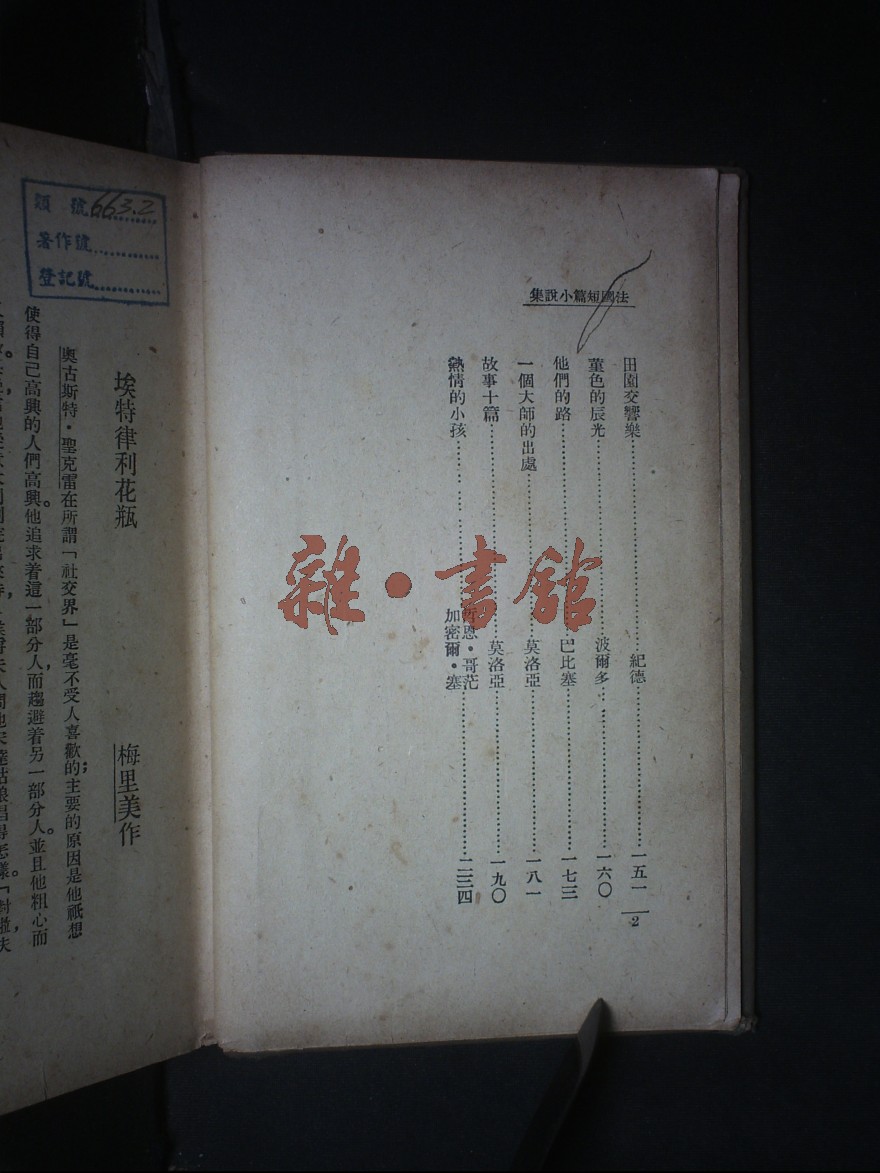 法國短篇小說集
田園交響樂……紀德……一五一
菫色的辰光……波爾多……一六〇
他們的路……巴比塞……一七三
一個大師的出處……莫洛亞……一八一
故事十篇……莫洛亞……一九〇
熱情的小孩……哥茫
加密爾·塞……二三四
2
雜·書館
類 號663.2
著作號
登記號
埃特律利花瓶
梅里美作
奧古斯特·聖克雷在所謂「社交界」是毫不受人喜歡的;主要的原因是他祇想
使得自己高興的人們高興。他追求着這一部分人,而趨避着另一部分人。並且他粗心而